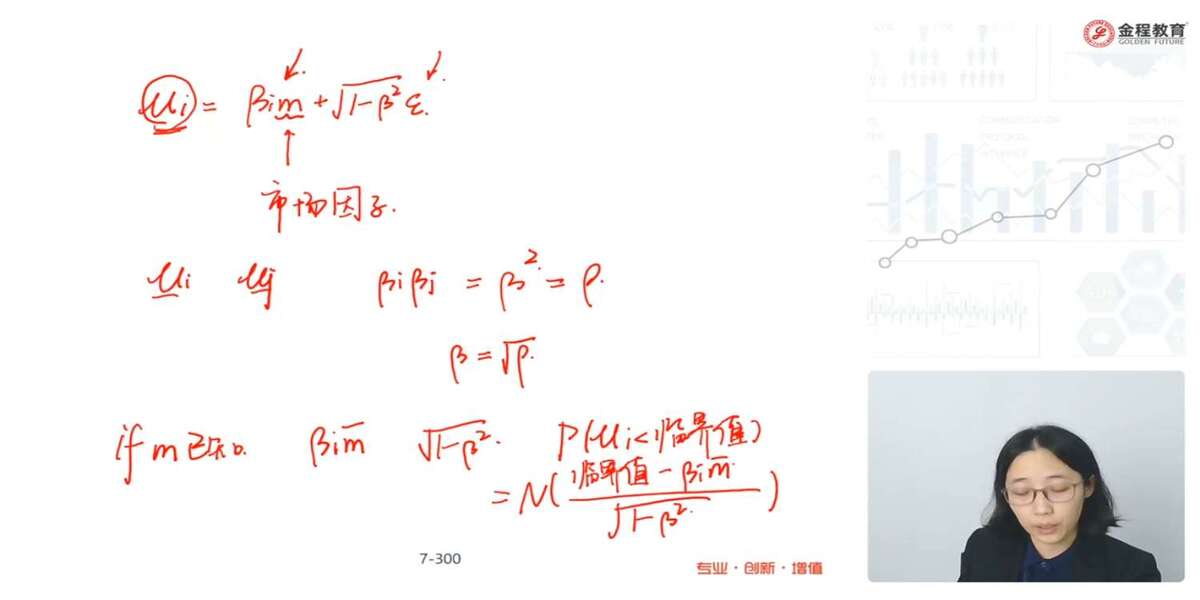 金程教育
GOLDEN FUTURE
μi = βim + √1-β² ε.
市场因子.
μi μj βiβj = β² = ρ.
β = √ρ.
if m已知. βi m̄ √1-β². P(μi<临界值)
= N( (临界值 - βi m̄) / √1-β² )
7-300
专业·创新·增值